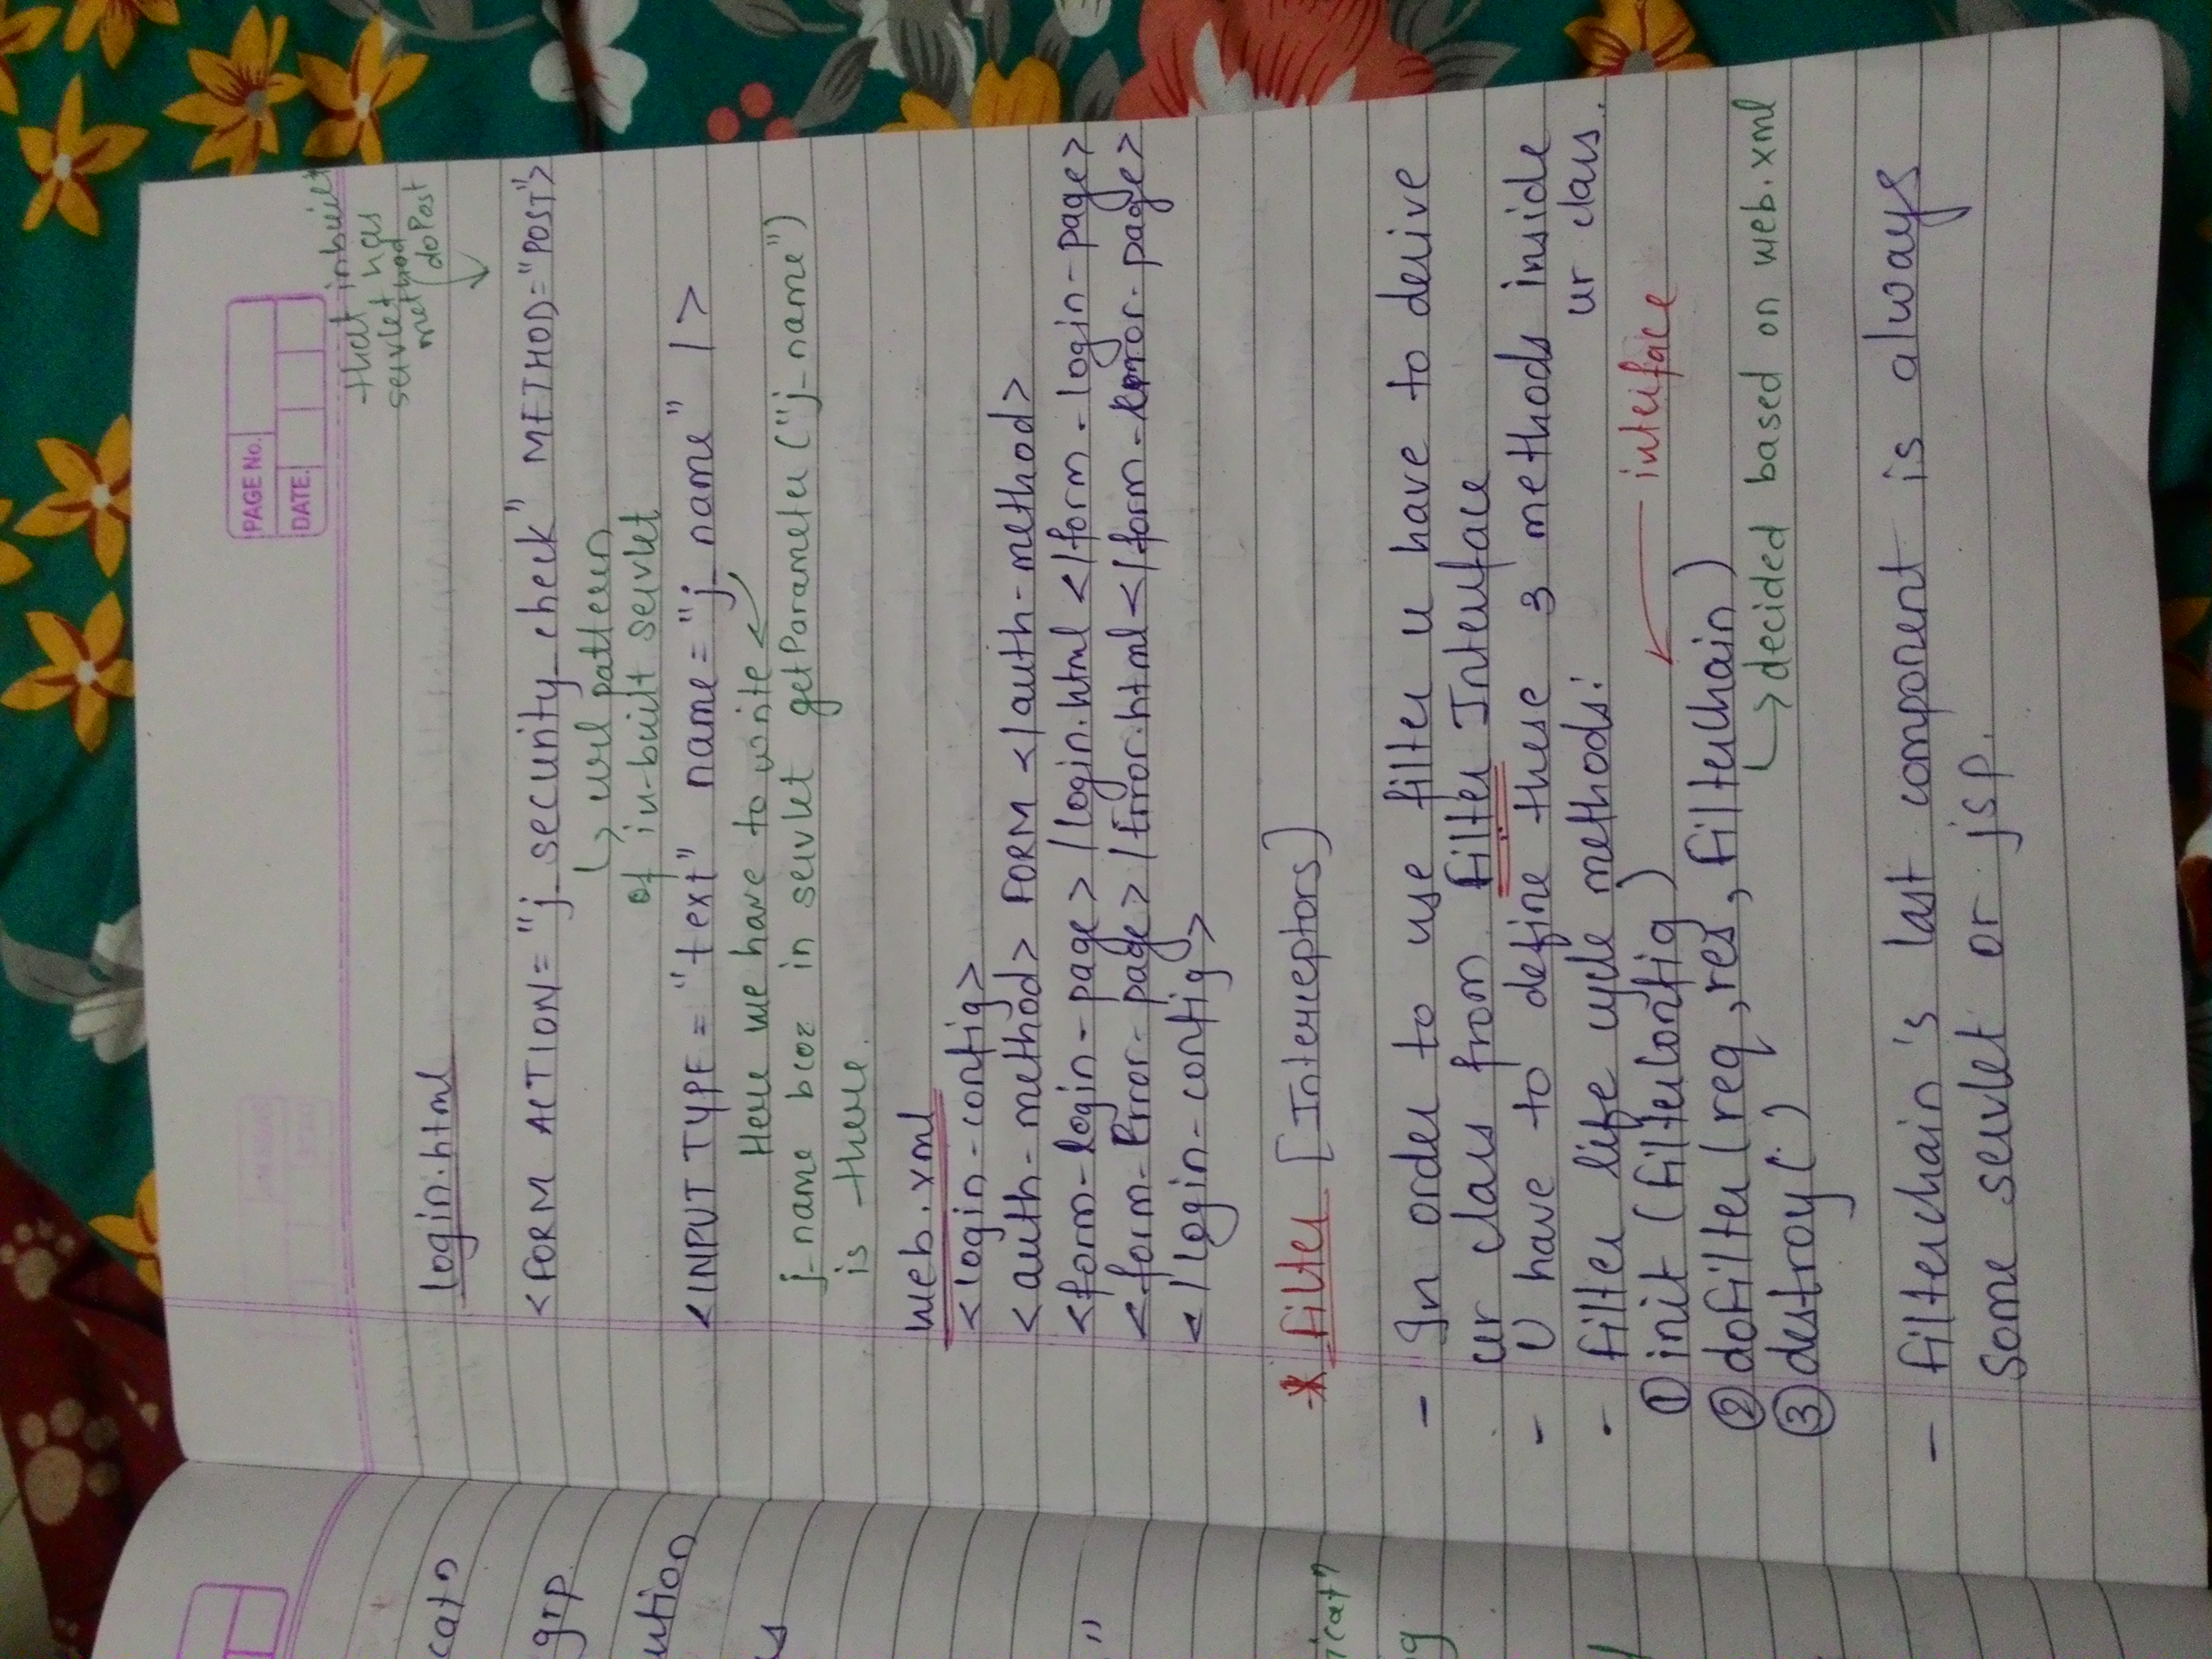 PAGE No.
DATE.
that inbuilt
servlet has
method
doPost
login.html
<FORM ACTION="j_security_check" METHOD="POST">
↳ url pattern
of in-built servlet
<INPUT TYPE="text" name="j_name" />
Here we have to write
j_name bcoz in servlet getParameter("j_name")
is there.
web.xml
<login-config>
<auth-method> FORM </auth-method>
<form-login-page> /login.html </form-login-page>
<form-Error-page> /Error.html </form-Error-page>
</login-config>
* Filter [Interceptors]
- In order to use filter u have to derive
ur class from Filter Interface
- U have to define these 3 methods inside
ur class.
- Filter life cycle methods:
① init (FilterConfig)
interface
② doFilter (req, res, FilterChain)
↳ decided based on web.xml
③ destroy()
- Filterchain's last component is always
some servlet or jsp.
catn
grp
ution
s
"
icatn
g